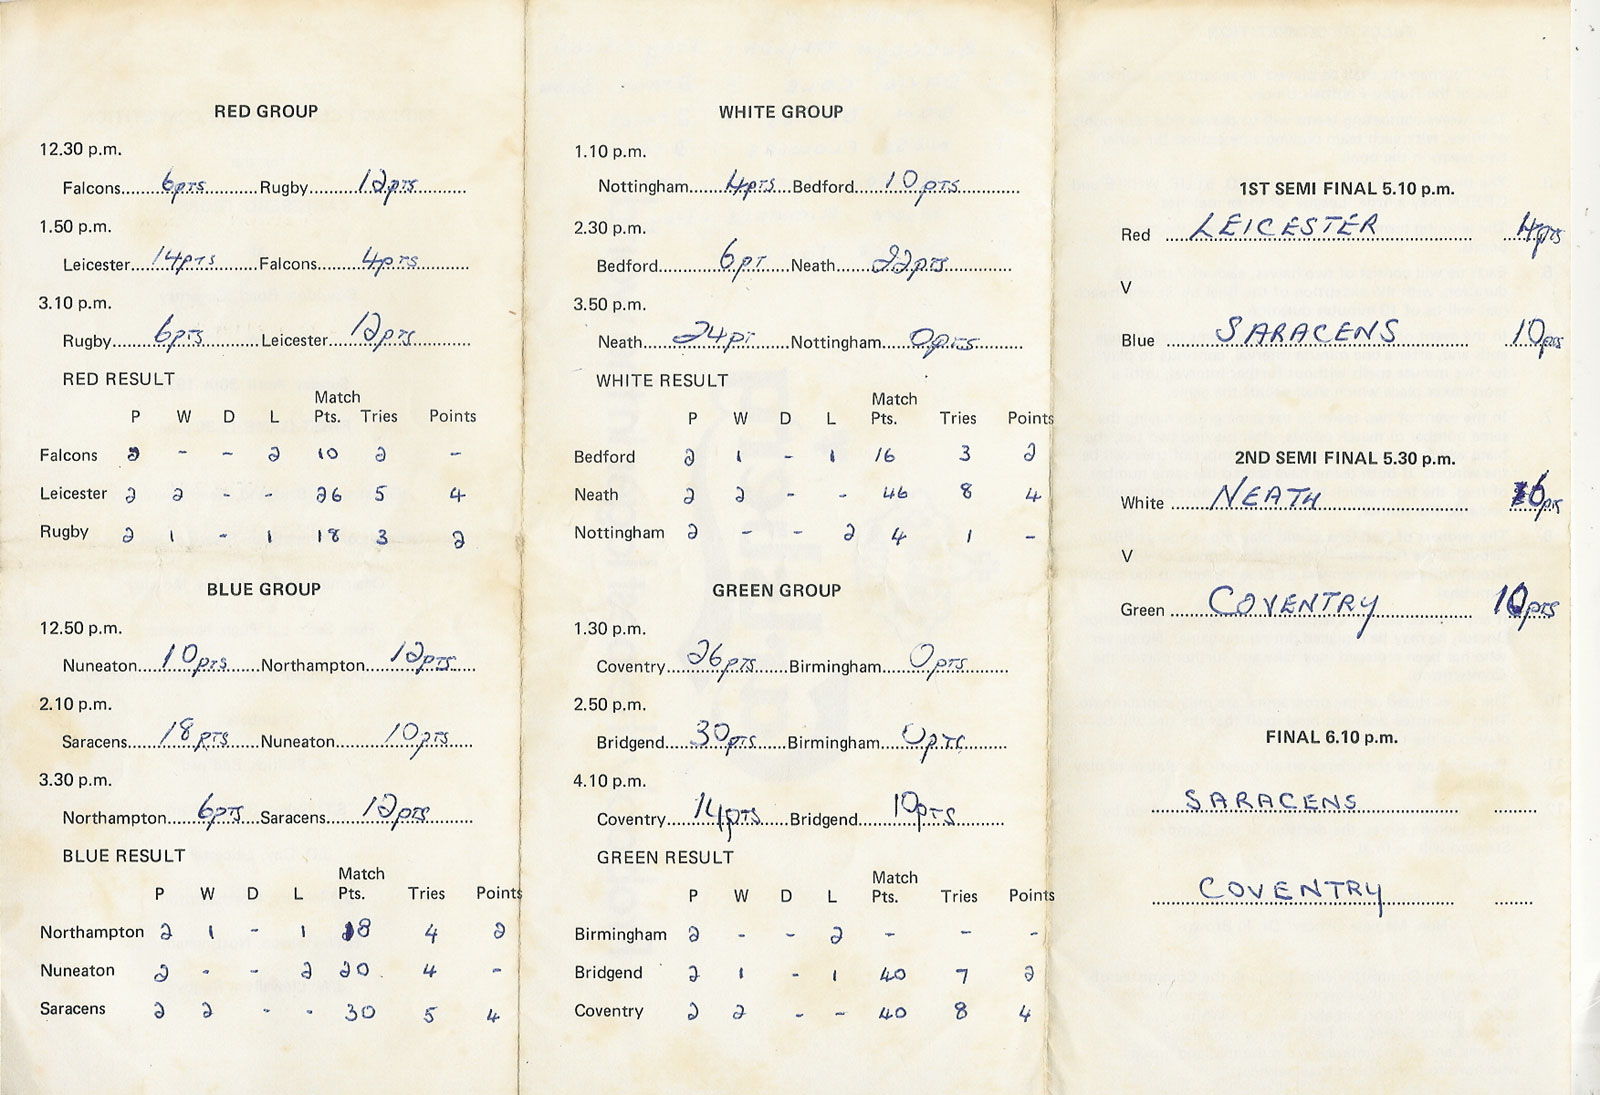 RED GROUP
12.30 p.m.
Falcons 6pts Rugby 12pts
1.50 p.m.
Leicester 14pts Falcons 4pts
3.10 p.m.
Rugby 6pts Leicester 12pts
RED RESULT
P W D L Match Pts. Tries Points
Falcons 2 - - 2 10 2 -
Leicester 2 2 - - 26 5 4
Rugby 2 1 - 1 18 3 2
BLUE GROUP
12.50 p.m.
Nuneaton 10pts Northampton 12pts
2.10 p.m.
Saracens 18pts Nuneaton 10pts
3.30 p.m.
Northampton 6pts Saracens 12pts
BLUE RESULT
P W D L Match Pts. Tries Points
Northampton 2 1 - 1 18 4 2
Nuneaton 2 - - 2 20 4 -
Saracens 2 2 - - 30 5 4
WHITE GROUP
1.10 p.m.
Nottingham 4pts Bedford 10pts
2.30 p.m.
Bedford 6pt Neath 22pts
3.50 p.m.
Neath 24pt Nottingham 0pts
WHITE RESULT
P W D L Match Pts. Tries Points
Bedford 2 1 - 1 16 3 2
Neath 2 2 - - 46 8 4
Nottingham 2 - - 2 4 1 -
GREEN GROUP
1.30 p.m.
Coventry 26pts Birmingham 0pts
2.50 p.m.
Bridgend 30pts Birmingham 0pts
4.10 p.m.
Coventry 14pts Bridgend 10pts
GREEN RESULT
P W D L Match Pts. Tries Points
Birmingham 2 - - 2 - - -
Bridgend 2 1 - 1 40 7 2
Coventry 2 2 - - 40 8 4
1ST SEMI FINAL 5.10 p.m.
Red LEICESTER 4pts
V
Blue SARACENS 10pts
2ND SEMI FINAL 5.30 p.m.
White NEATH pts
V
Green COVENTRY pts
FINAL 6.10 p.m.
SARACENS
COVENTRY